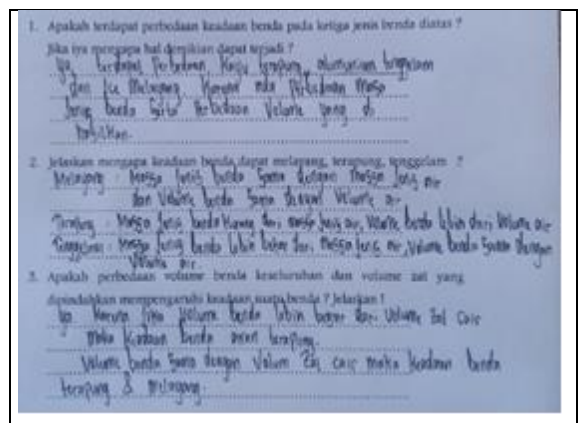 1. Apakah terdapat perbedaan keadaan benda pada ketiga jenis benda diatas ?
Jika iya mengapa hal demikian dapat terjadi ?
Ya, terdapat Perbedaan. Kayu terapung, alumunium tenggelam
dan Es Melayang. Karena ada Perbedaan Massa
Jenis benda Serta Perbedaan Volume yang di
hasilkan.
2. Jelaskan mengapa keadaan benda dapat melayang, terapung, tenggelam ?
Melayang : Massa Jenis benda Sama dengan Massa Jenis air
dan Volume benda Sama dengan Volume air
Terapung : Massa Jenis benda kurang dari massa Jenis air, Volume benda lebih dari Volume air
Tenggelam : Massa Jenis benda lebih besar dari Massa Jenis air, Volume benda Sama dengan
Volume air.
3. Apakah perbedaan volume benda keseluruhan dan volume zat yang
dipindahkan mempengaruhi keadaan suatu benda ? Jelaskan !
Ya. Karena Jika Volume benda lebih besar dari Volume Zat Cair
maka keadaan benda akan terapung.
Volume benda Sama dengan Volum Zat cair maka keadaan benda
terapung & Melayang.